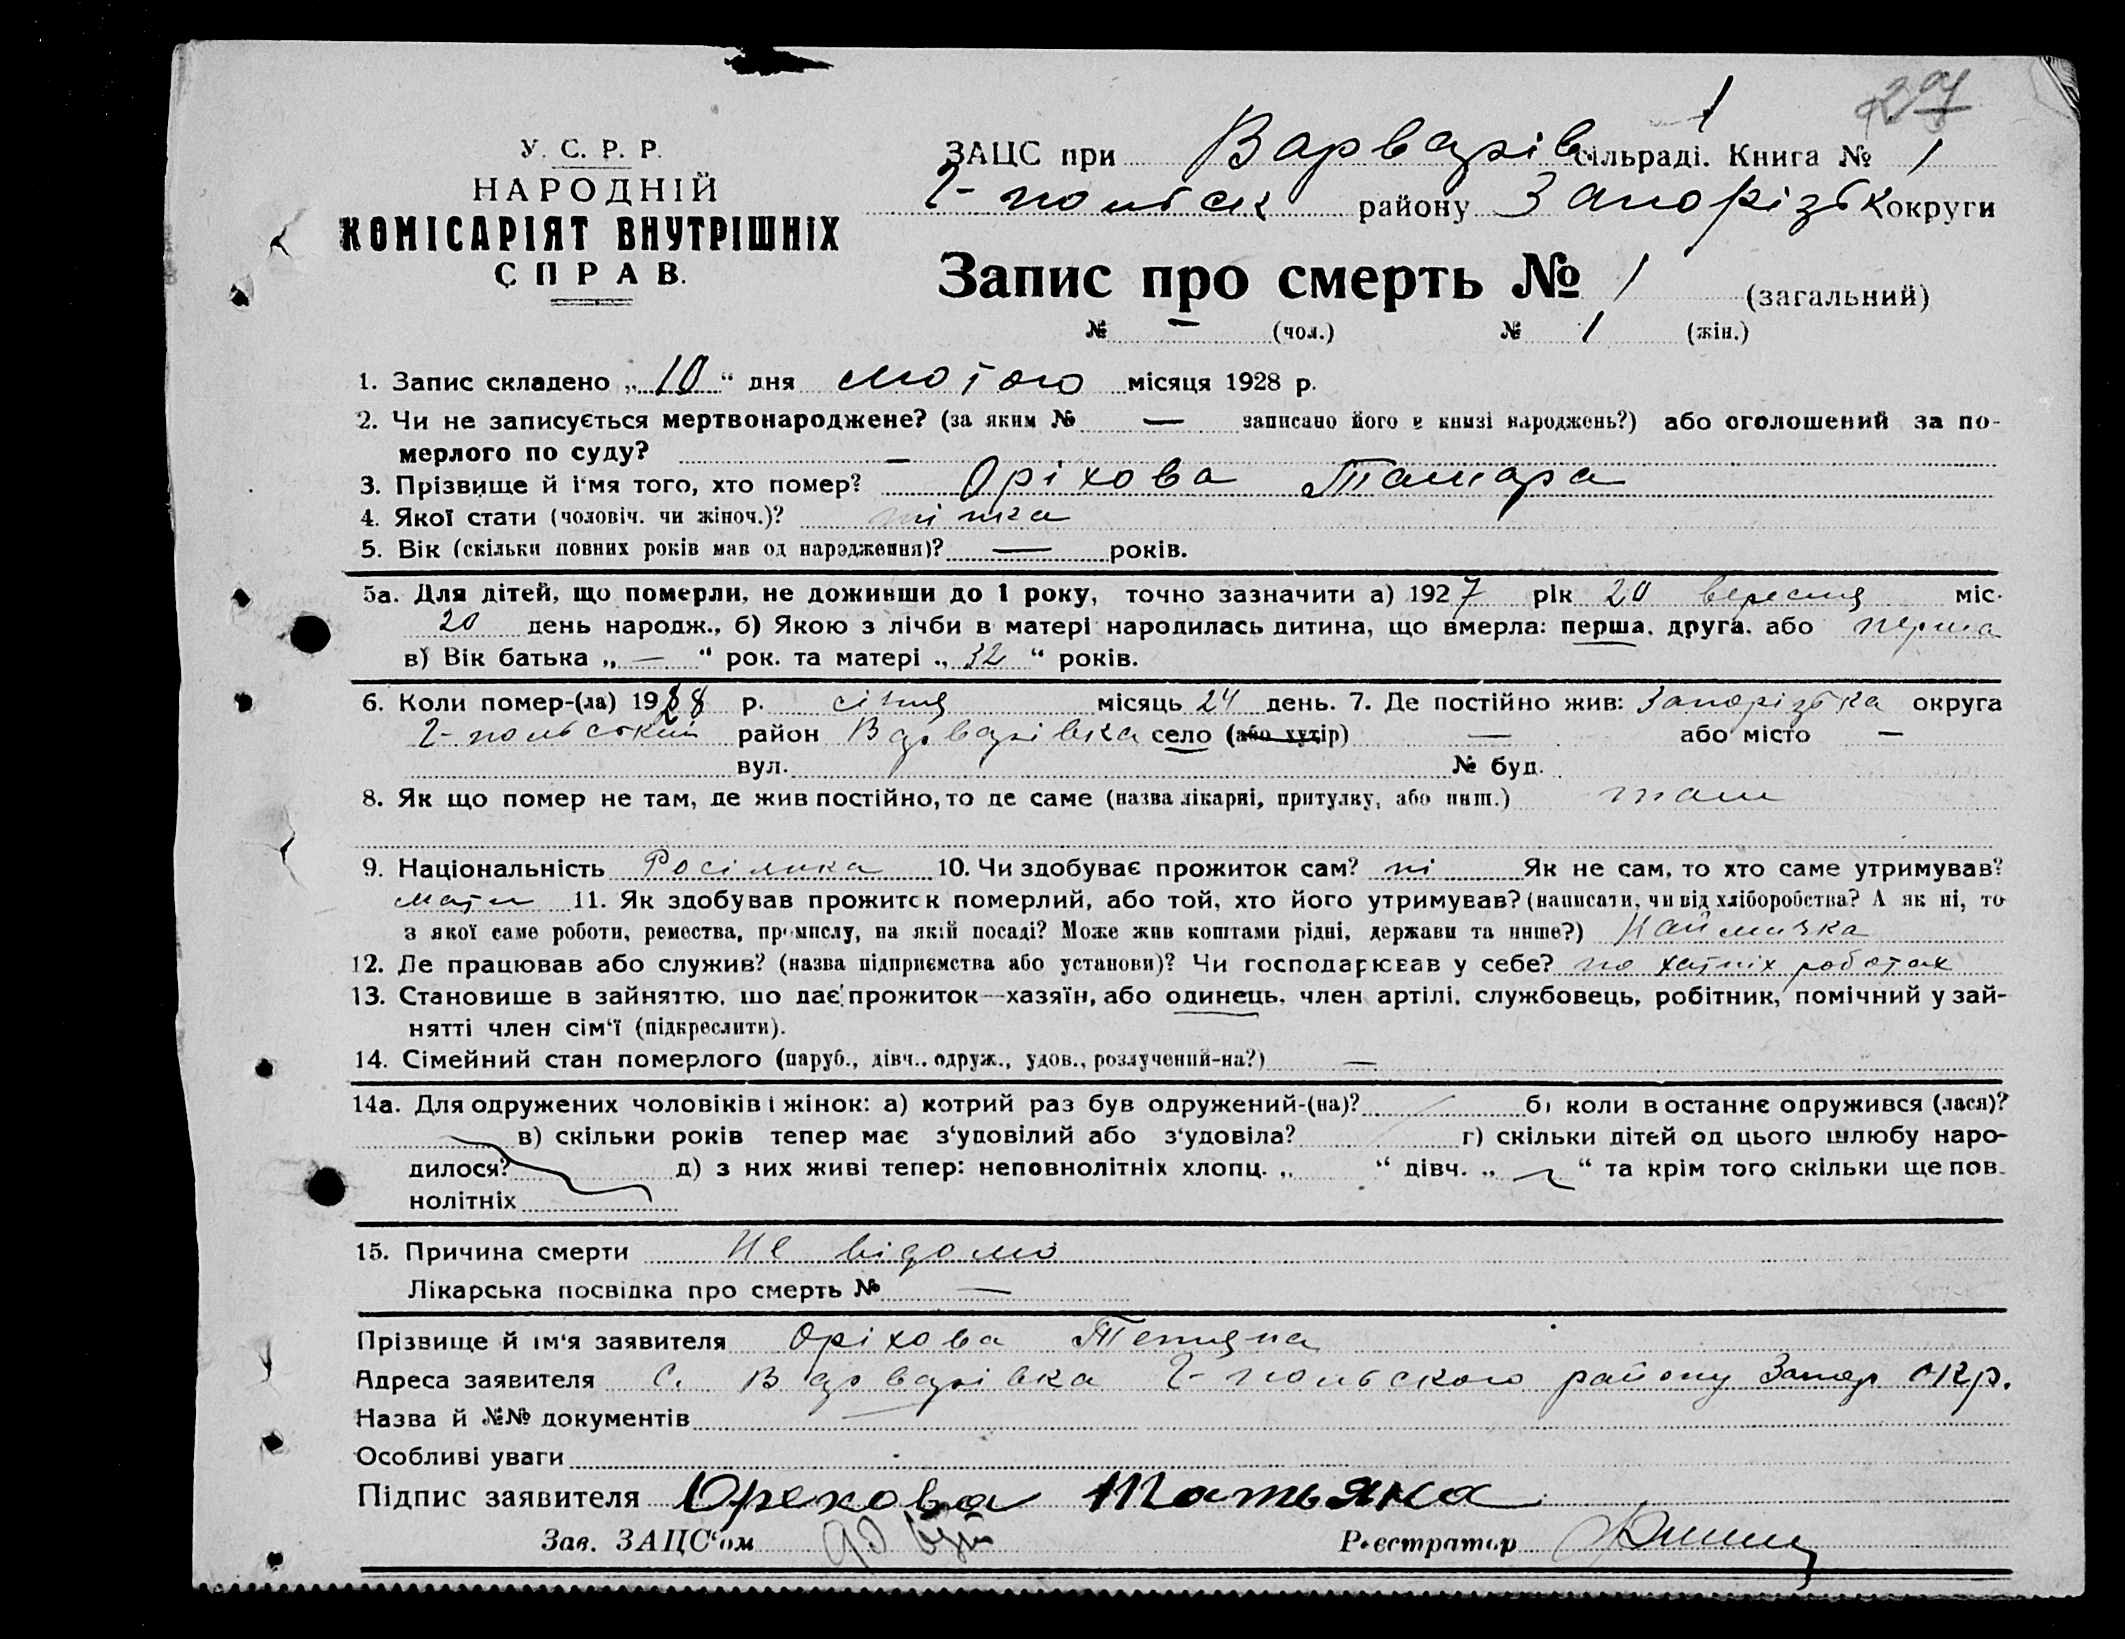 297
1
У. С. Р. Р.
НАРОДНІЙ
КОМІСАРІЯТ ВНУТРІШНІХ
СПРАВ.
ЗАЦС при Варварів. сільраді. Книга № 1
Г-польськ району Запорізьк округи
Запис про смерть № 1 (загальний)
№ — (чол.) № 1 (жін.)
1. Запис складено „10“ дня лютого місяця 1928 р.
2. Чи не записується мертвонароджене? (за яким № — записано його в книзі народжень?) або оголошений за по-
мерлого по суду? —
3. Прізвище й і'мя того, хто помер? Оріхова Тамара
4. Якої стати (чоловіч. чи жіноч.)? жінка
5. Вік (скільки повних років мав од народження)? — років.
5а. Для дітей, що померли, не доживши до 1 року, точно зазначити а) 1927 рік 20 вересня міс.
20 день народж., б) Якою з лічби в матері народилась дитина, що вмерла: перша, друга, або перша
в) Вік батька „—“ рок. та матері „32“ років.
6. Коли помер-(ла) 1928 р. січня місяць 24 день. 7. Де постійно жив: Запорізька округа
Г-польский район Варварівка село (або хутір) — або місто —
вул. № буд.
8. Як що помер не там, де жив постійно, то де саме (назва лікарні, притулку, або инш.) там
9. Національність Росіянка 10. Чи здобуває прожиток сам? ні Як не сам, то хто саме утримував?
мати 11. Як здобував прожиток померлий, або той, хто його утримував? (написати, чи від хліборобства? А як ні, то
з якої саме роботи, ремества, промислу, на якій посаді? Може жив коштами рідні, держави та инше?) Наймичка
12. Де працював або служив? (назва підприємства або установи)? Чи господарював у себе? по хатніх роботах
13. Становище в зайняттю, що дає прожиток—хазяїн, або одинець, член артілі, службовець, робітник, помічний у зай-
нятті член сім'ї (підкреслити).
14. Сімейний стан померлого (паруб., дівч., одруж., удов., розлучений-на?) —
14а. Для одружених чоловіків і жінок: а) котрий раз був одружений-(на)? б) коли в останнє одружився (лася)?
в) скільки років тепер має з'удовілий або з'удовіла? г) скільки дітей од цього шлюбу наро-
дилося? д) з них живі тепер: неповнолітніх хлопц. „ “ дівч. „ “ та крім того скільки ще пов-
нолітніх
15. Причина смерти Не відомо
Лікарська посвідка про смерть № —
Прізвище й ім'я заявителя Оріхова Тетяна
Адреса заявителя С. Варварівка Г-польского району Запор окр.
Назва й №№ документів
Особливі уваги
Підпис заявителя Орехова Татьяна
Зав. ЗАЦС'ом
Реєстратор